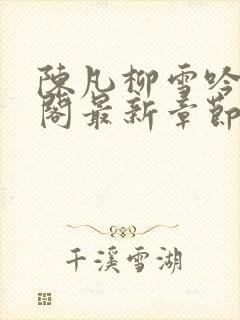 陳凡柳雪吟
閣最新章節
千溪雪湖